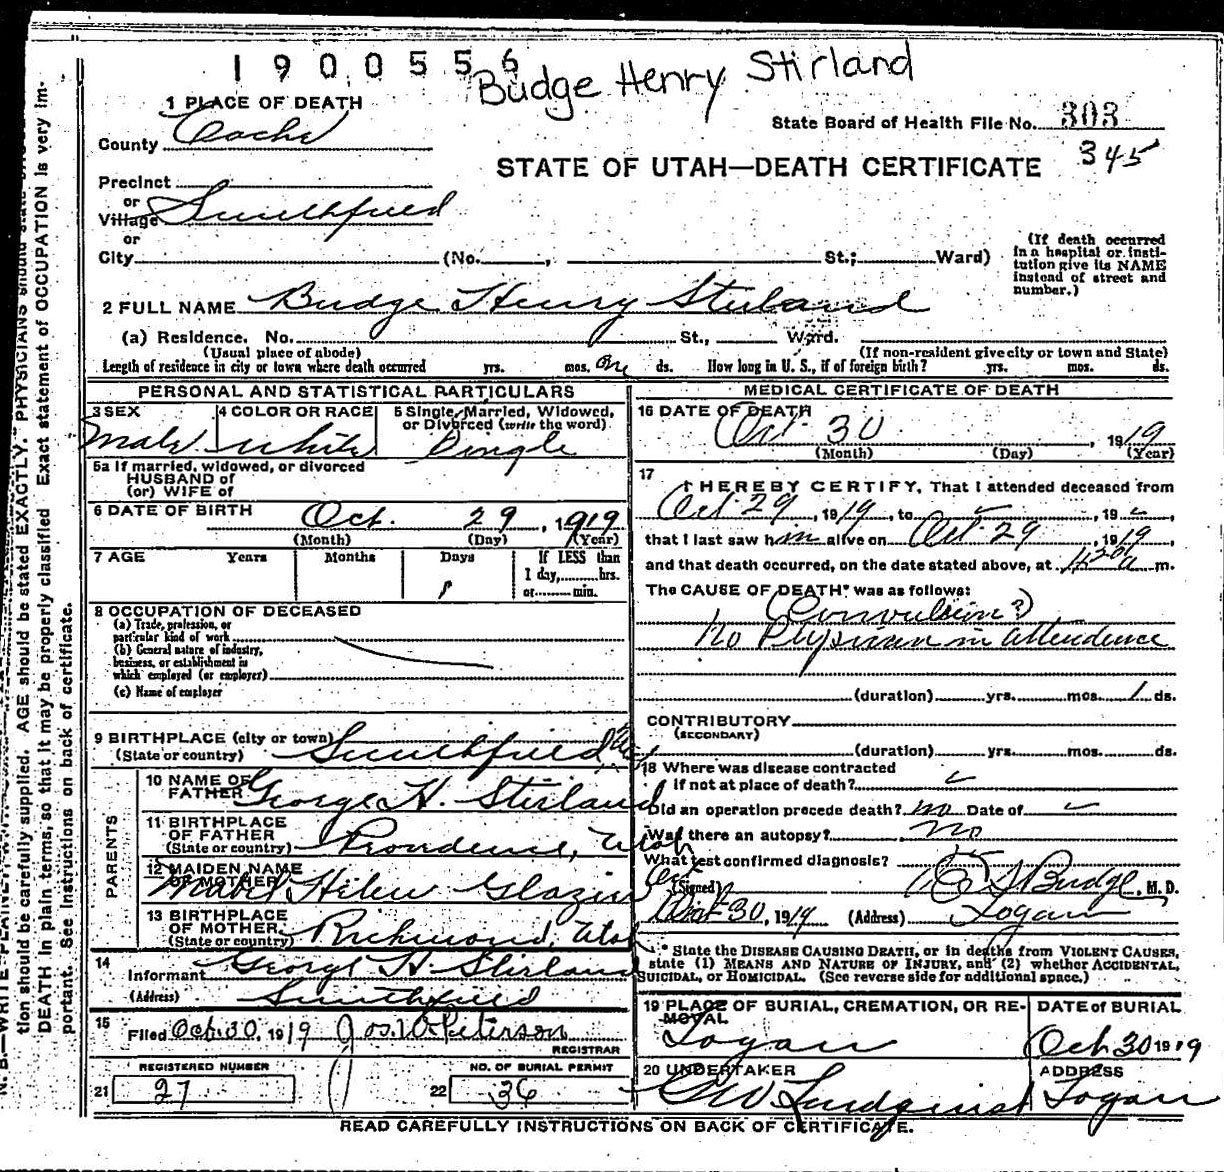 1900556
Budge Henry Stirland
1 PLACE OF DEATH
County Cache
State Board of Health File No. 303
345
STATE OF UTAH—DEATH CERTIFICATE
Precinct
or
Village Smithfield
or
City (No. , St.; Ward)
(If death occurred in a hospital or institution give its NAME instead of street and number.)
2 FULL NAME Budge Henry Stirland
(a) Residence. No. St., Ward.
(Usual place of abode) (If non-resident give city or town and State)
Length of residence in city or town where death occurred yrs. mos. One ds. How long in U. S., if of foreign birth? yrs. mos. ds.
PERSONAL AND STATISTICAL PARTICULARS
3 SEX Male
4 COLOR OR RACE White
5 Single, Married, Widowed, or Divorced (write the word) Single
5a If married, widowed, or divorced
HUSBAND of
(or) WIFE of
6 DATE OF BIRTH Oct. 29, 1919
(Month) (Day) (Year)
7 AGE Years Months Days If LESS than
1 1 day, hrs.
or min.
8 OCCUPATION OF DECEASED
(a) Trade, profession, or
particular kind of work
(b) General nature of industry,
business, or establishment in
which employed (or employer)
(c) Name of employer
9 BIRTHPLACE (city or town) Smithfield
(State or country)
PARENTS
10 NAME OF FATHER George H. Stirland
11 BIRTHPLACE OF FATHER
(State or country) Providence, Utah
12 MAIDEN NAME OF MOTHER Helen Glazier
13 BIRTHPLACE OF MOTHER
(State or country) Richmond, Utah
14 Informant George H Stirland
(Address) Smithfield
15 Filed Oct. 30, 1919 Jos. W. Peterson
REGISTRAR
REGISTERED NUMBER NO. OF BURIAL PERMIT
21 27 22 36
MEDICAL CERTIFICATE OF DEATH
16 DATE OF DEATH Oct 30, 1919
(Month) (Day) (Year)
17
I HEREBY CERTIFY, That I attended deceased from
Oct 29, 1919, to , 19 ,
that I last saw him alive on Oct 29, 1919,
and that death occurred, on the date stated above, at m.
The CAUSE OF DEATH* was as follows:
(Convulsion?)
No Physician in attendence
(duration) yrs. mos. 1 ds.
CONTRIBUTORY
(SECONDARY)
(duration) yrs. mos. ds.
18 Where was disease contracted
If not at place of death?
Did an operation precede death? no Date of
Was there an autopsy? no
What test confirmed diagnosis?
(Signed) S Budge, M. D.
Oct 30, 1919 (Address) Logan
* State the DISEASE CAUSING DEATH, or in deaths from VIOLENT CAUSES,
state (1) MEANS AND NATURE OF INJURY, and (2) whether ACCIDENTAL,
SUICIDAL, or HOMICIDAL. (See reverse side for additional space.)
19 PLACE OF BURIAL, CREMATION, OR REMOVAL Logan
DATE of BURIAL Oct 30 1919
20 UNDERTAKER G W Lindquist
ADDRESS Logan
READ CAREFULLY INSTRUCTIONS ON BACK OF CERTIFICATE.
N. B.—WRITE PLAINLY
tion should be carefully supplied. AGE should be stated EXACTLY. PHYSICIANS should state
DEATH in plain terms, so that it may be properly classified. Exact statement of OCCUPATION is very im-
portant. See instructions on back of certificate.